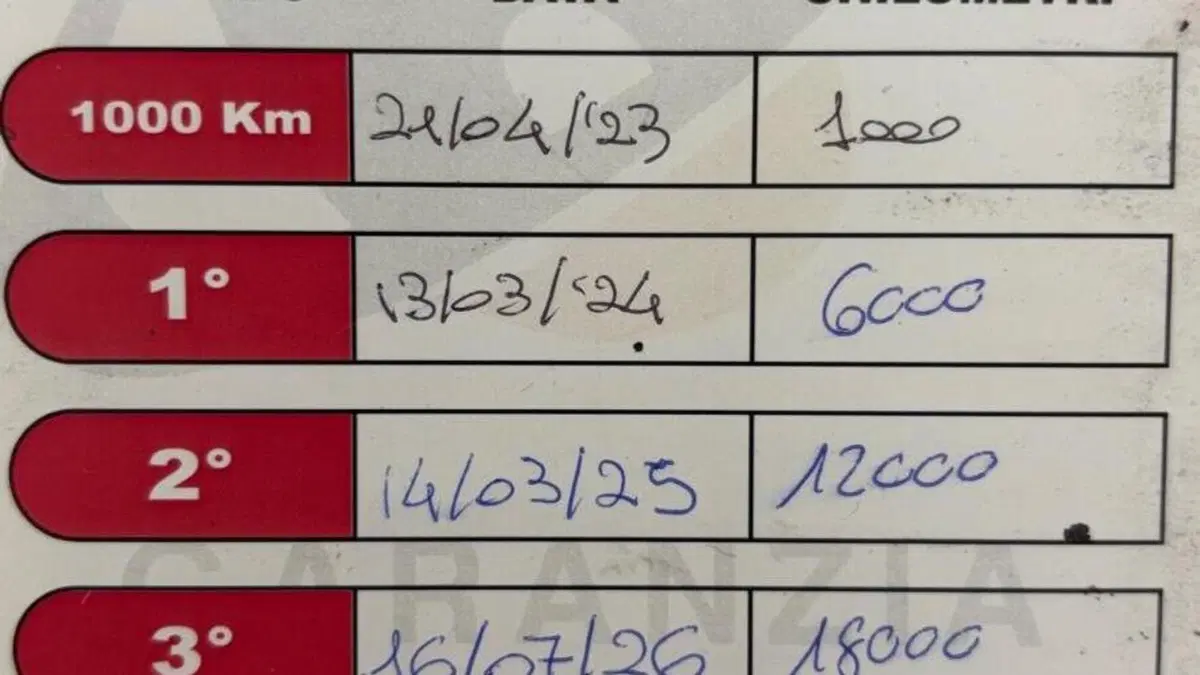 DATA CHILOMETRI
1000 Km 21/04/'23 1000
1° 13/03/'24 6000
2° 14/03/25 12000
GARANZIA
3° 16/07/26 18000